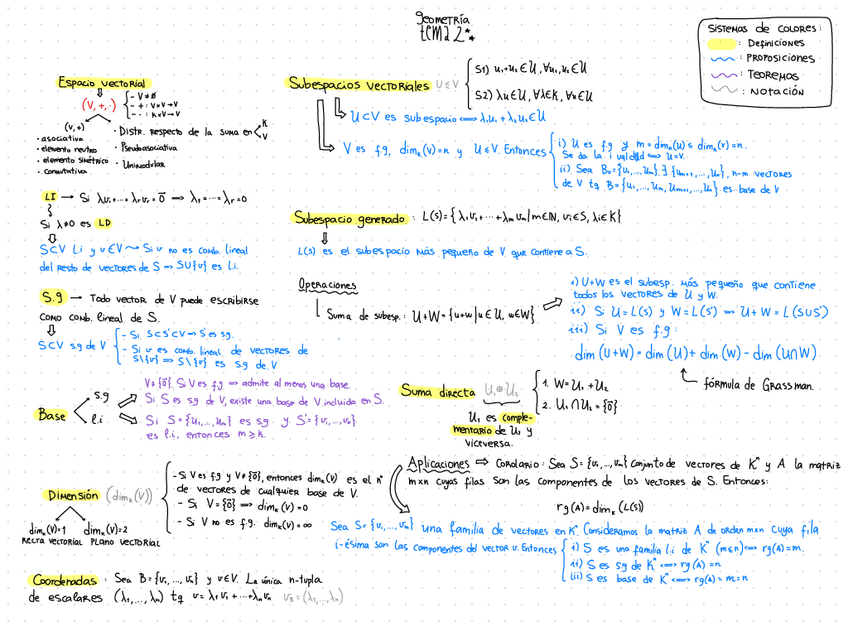 geometría
tema 2
SISTEMAS DE COLORES:
: DEFINICIONES
: PROPOSICIONES
: TEOREMAS
: NOTACIÓN
Espacio vectorial
(V, +, ·)
- V ≠ ∅
- + : V×V → V
- · : K×V → V
(V, +)
· asociativa
· elemento neutro
· elemento simétrico
· conmutativa
· Distr. respecto de la suma en K V
· Pseudoasociativa
· Unimodular
LI → Si λ₁v₁+...+λᵣvᵣ = 0̄ ⟹ λ₁=...=λᵣ=0
Si λ≠0 es LD
S⊂V li y v∈V ⟶ Si v no es comb. lineal
del resto de vectores de S ⟹ S∪{v} es li.
S.g → Todo vector de V puede escribirse
como comb. lineal de S.
S⊂V sg de V
- Si S⊂S'⊂V ⟹ S' es sg.
- Si v es comb. lineal de vectores de
S\{v} ⟹ S\{v} es sg de V
Base
s.g
l.i.
V≠{0̄}. Si V es f.g ⟹ admite al menos una base.
Si S es sg de V, existe una base de V incluida en S.
Si S={u₁,...,uₘ} es sg y S'={v₁,...,vₖ}
es l.i., entonces m ≥ k.
Dimensión (dimₖ(V))
- Si V es f.g y V≠{0̄}, entonces dimₖ(V) es el nº
de vectores de cualquier base de V.
- Si V={0̄} ⟹ dimₖ(V)=0
- Si V no es f.g. dimₖ(V)=∞
dimₖ(V)=1 dimₖ(V)=2
RECTA VECTORIAL PLANO VECTORIAL
Coordenadas : Sea B={v₁,...,vₙ} y v∈V. La única n-tupla
de escalares (λ₁,...,λₙ) tq v=λ₁v₁+...+λₙvₙ v_B=(λ₁,...,λₙ)
Subespacios vectoriales U≤V
S1) u₁+u₂∈U, ∀u₁,u₂∈U
S2) λu∈U, ∀λ∈K, ∀u∈U
U⊂V es subespacio ⟺ λ₁u₁+λ₂u₂∈U
V es f.g, dimₖ(V)=n y U≤V. Entonces
i) U es f.g y m=dimₖ(U)≤dimₖ(V)=n.
Se da la igualdad ⟺ U=V.
ii) Sea Bᵤ={u₁,...,uₘ}. ∃{uₘ₊₁,...,uₙ}, n-m vectores
de V tq B={u₁,...,uₘ,uₘ₊₁,...,uₙ} es base de V
Subespacio generado : L(S)={λ₁v₁+...+λₘvₘ|m∈ℕ, vᵢ∈S, λᵢ∈K}
L(S) es el subespacio más pequeño de V que contiene a S.
Operaciones
Suma de subesp.: U+W={u+w|u∈U, w∈W}
i) U+W es el subesp. más pequeño que contiene
todos los vectores de U y W.
ii) Si U=L(S) y W=L(S') ⟹ U+W=L(S∪S')
iii) Si V es f.g:
dim(U+W)=dim(U)+dim(W)-dim(U∩W)
fórmula de Grassman.
Suma directa U₁⊕U₂
1. W=U₁+U₂
2. U₁∩U₂={0̄}
U₁ es comple-
mentario de U₂ y
viceversa.
Aplicaciones ⟹ Corolario: Sea S={v₁,...,vₘ} conjunto de vectores de Kⁿ y A la matriz
m×n cuyas filas son las componentes de los vectores de S. Entonces:
rg(A)=dimₖ(L(S))
Sea S={v₁,...,vₘ} una familia de vectores en Kⁿ. Consideramos la matriz A de orden m×n cuya fila
i-ésima son las componentes del vector v. Entonces
i) S es una familia l.i de Kⁿ (m≤n) ⟺ rg(A)=m.
ii) S es sg de Kⁿ ⟺ rg(A)=n
iii) S es base de Kⁿ ⟺ rg(A)=m=n